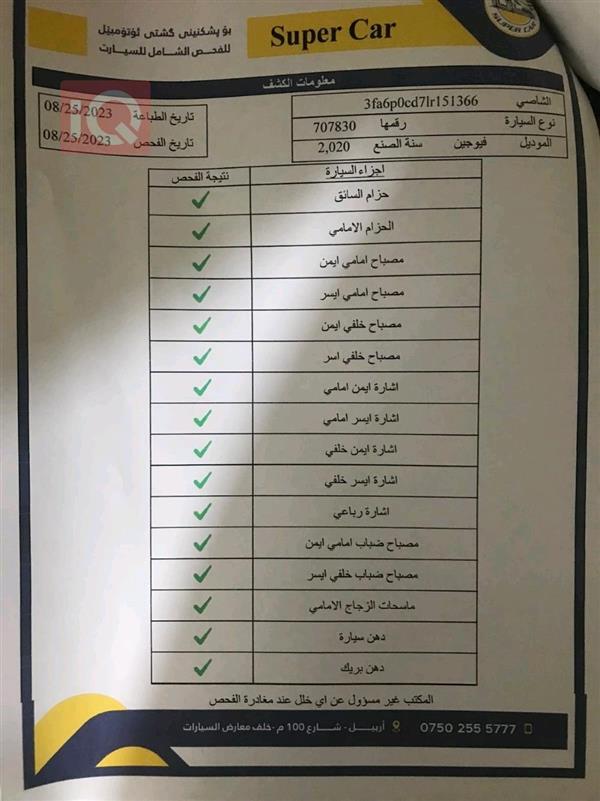 بۆ پشكنینی گشتی ئۆتۆمبێل
للفحص الشامل للسيارت
Super Car
SUPER CAR
معلومات الكشف
الشاصي 3fa6p0cd7lr151366
نوع السيارة رقمها 707830
الموديل فيوجين سنة الصنع 2,020
تاريخ الطباعة 08/25/2023
تاريخ الفحص 08/25/2023
IQ
اجزاء السيارة نتيجة الفحص
حزام السائق ✓
الحزام الامامي ✓
مصباح امامي ايمن ✓
مصباح امامي ايسر ✓
مصباح خلفي ايمن ✓
مصباح خلفي اسر ✓
اشارة ايمن امامي ✓
اشارة ايسر امامي ✓
اشارة ايمن خلفي ✓
اشارة ايسر خلفي ✓
اشارة رباعي ✓
مصباح ضباب امامي ايمن ✓
مصباح ضباب خلفي ايسر ✓
ماسحات الزجاج الامامي ✓
دهن سيارة ✓
دهن بريك ✓
المكتب غير مسؤول عن اي خلل عند مغادرة الفحص
أربيل - شارع 100 م -خلف معارض السيارات 0750 255 5777